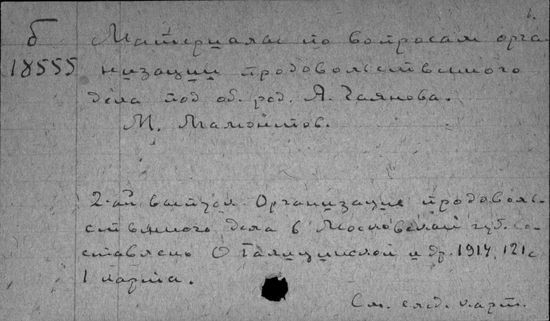 б
18555
Материалы по вопросам орга-
низации продовольственного
дела под об. ред. А. Чаянова.
М. Мамонтов.
2-ой выпуск Организация продоволь-
ственного дела в Московской губ. со-
ставлено О Галицинской и др. 1917, 121 с
1 карта.
См. след. карт.